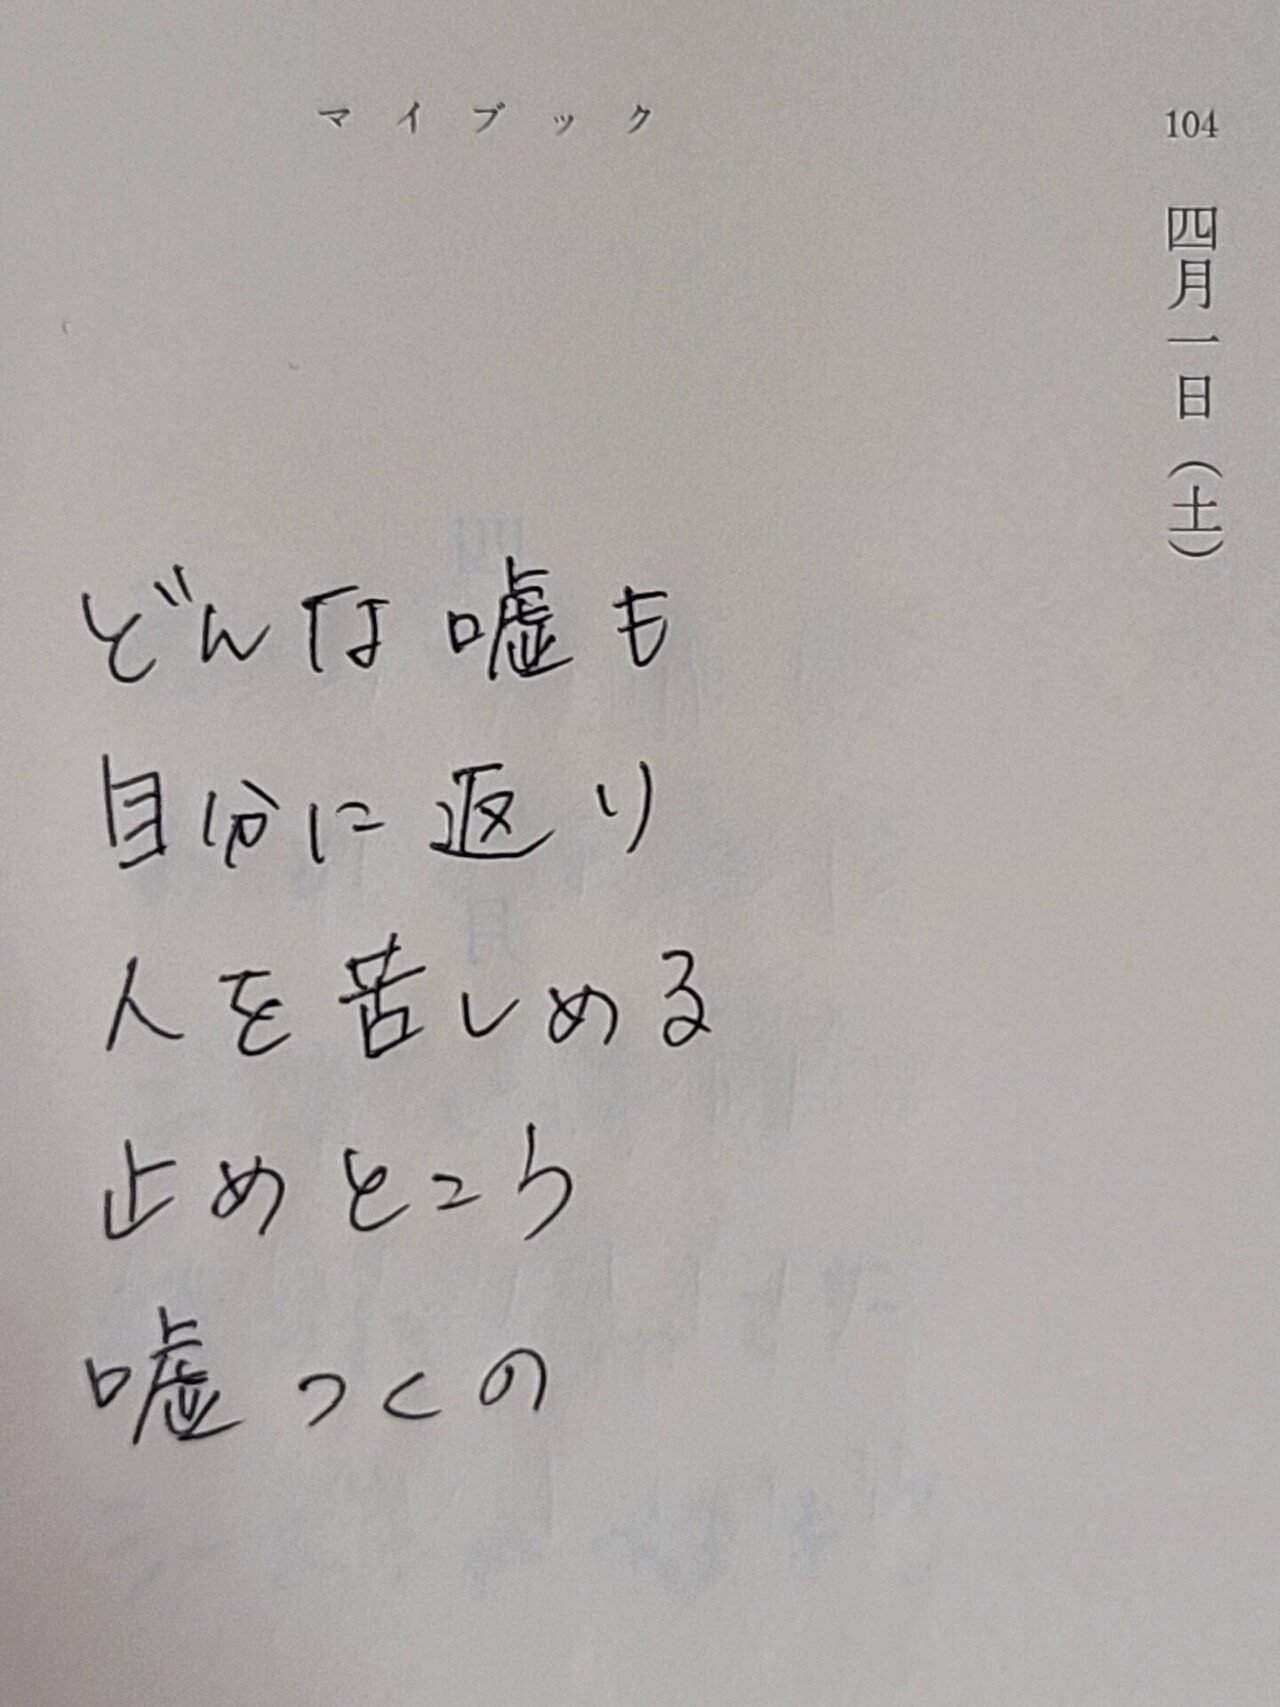 マイブック
104
四月一日(土)
どんな嘘も
自分に返り
人を苦しめる
止めとこう
嘘つくの